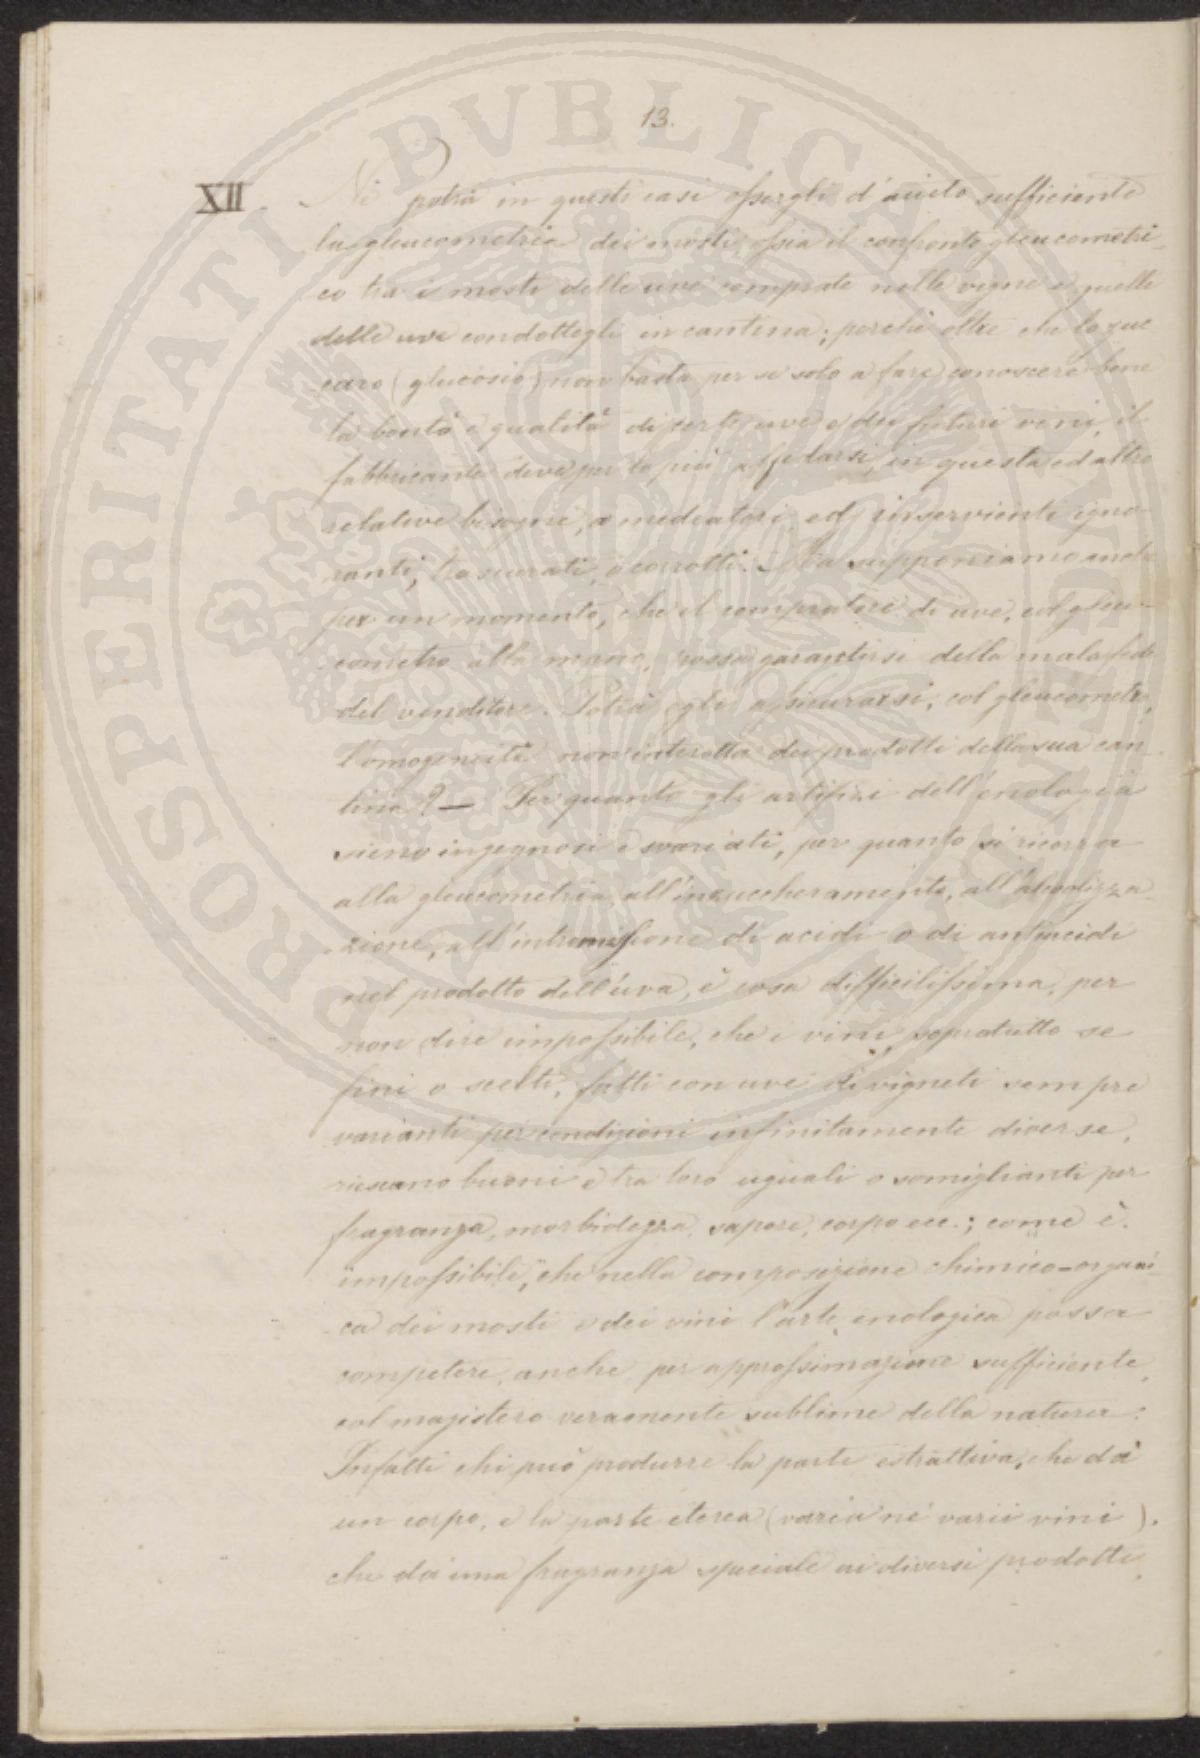 13.
XII. Nè potrà in questi casi essergli d'aiuto sufficiente
la gleucometria dei mosti, ossia il confronto gleucometri-
co tra i mosti delle uve comprate nelle vigne e quelli
delle uve condottegli in cantina; perchè oltre che lo zuc
caro (glucosio) non basta per se solo a fare conoscere bene
la bontà e qualità di certe uve e dei futuri vini, il
fabbricante deve per lo più affidarsi, in questa ed altre
relative bisogne, a mediatori ed inservienti igno-
ranti, trascurati, o corrotti. Ma supponiamo anche
per un momento, che il compratore di uve, col gleu-
cometro alla mano, possa garantirsi della mala fede
del venditore. Potrà egli assicurarsi, col gleucometro,
l'omogeneità non interotta dei prodotti della sua can-
tina? — Per quanto gli artifizi dell'enologia
sieno ingegnosi e svariati, per quanto si ricorra
alla gleucometria, all'inzuccheramento, all'alcoolizza-
zione, all'intromissione di acidi o di antiacidi
nel prodotto dell'uva, è cosa difficilissima, per
non dire impossibile, che i vini, sopratutto se
fini o scelti, fatti con uve di vigneti sempre
varianti per condizioni infinitamente diverse,
riescano buoni e tra loro uguali o somiglianti per
fragranza, morbidezza, sapore, corpo ecc.; come è
impossibile, che nella composizione chimico-organi-
ca dei mosti e dei vini l'arte enologica possa
competere, anche per approssimazione sufficiente,
col magistero veramente sublime della natura.
Infatti chi può produrre la parte estrattiva, che dà
un corpo, e la parte eterea (varia nè varii vini),
che dà una fragranza speciale ai diversi prodotti
PROSPERITATI PVBLICAE